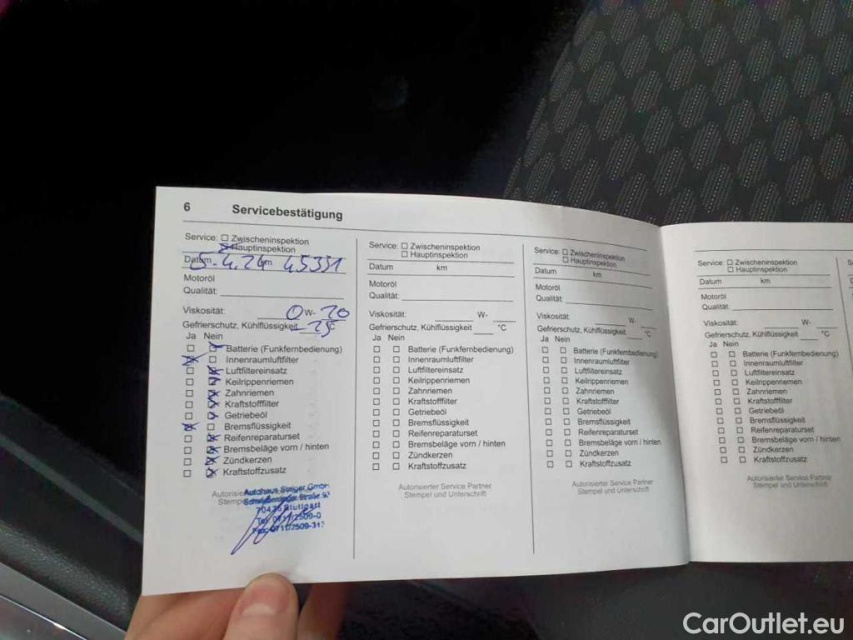 6 Servicebestätigung
Service: ☐ Zwischeninspektion
☒ Hauptinspektion
Datum 5.4.24 km 45331
Motoröl
Qualität:
Viskosität: 0 W- 20
Gefrierschutz, Kühlflüssigkeit -25
Ja Nein
☐ ☒ Batterie (Funkfernbedienung)
☒ ☐ Innenraumluftfilter
☐ ☒ Luftfiltereinsatz
☐ ☒ Keilrippenriemen
☐ ☒ Zahnriemen
☐ ☒ Kraftstofffilter
☐ ☒ Getriebeöl
☒ ☐ Bremsflüssigkeit
☐ ☒ Reifenreparaturset
☐ ☒ Bremsbeläge vorn / hinten
☐ ☒ Zündkerzen
☐ ☒ Kraftstoffzusatz
Autohaus Steiger GmbH
Stuttgart
Service: ☐ Zwischeninspektion
☐ Hauptinspektion
Datum km
Motoröl
Qualität:
Viskosität: W-
Gefrierschutz, Kühlflüssigkeit °C
Ja Nein
☐ ☐ Batterie (Funkfernbedienung)
☐ ☐ Innenraumluftfilter
☐ ☐ Luftfiltereinsatz
☐ ☐ Keilrippenriemen
☐ ☐ Zahnriemen
☐ ☐ Kraftstofffilter
☐ ☐ Getriebeöl
☐ ☐ Bremsflüssigkeit
☐ ☐ Reifenreparaturset
☐ ☐ Bremsbeläge vorn / hinten
☐ ☐ Zündkerzen
☐ ☐ Kraftstoffzusatz
Autorisierter Service Partner
Stempel und Unterschrift
Service: ☐ Zwischeninspektion
☐ Hauptinspektion
Datum km
Motoröl
Qualität:
Viskosität: W-
Gefrierschutz, Kühlflüssigkeit °C
Ja Nein
☐ ☐ Batterie (Funkfernbedienung)
☐ ☐ Innenraumluftfilter
☐ ☐ Luftfiltereinsatz
☐ ☐ Keilrippenriemen
☐ ☐ Zahnriemen
☐ ☐ Kraftstofffilter
☐ ☐ Getriebeöl
☐ ☐ Bremsflüssigkeit
☐ ☐ Reifenreparaturset
☐ ☐ Bremsbeläge vorn / hinten
☐ ☐ Zündkerzen
☐ ☐ Kraftstoffzusatz
Autorisierter Service Partner
Stempel und Unterschrift
Service: ☐ Zwischeninspektion
☐ Hauptinspektion
Datum km
Motoröl
Qualität:
Viskosität: W-
Gefrierschutz, Kühlflüssigkeit °C
Ja Nein
☐ ☐ Batterie (Funkfernbedienung)
☐ ☐ Innenraumluftfilter
☐ ☐ Luftfiltereinsatz
☐ ☐ Keilrippenriemen
☐ ☐ Zahnriemen
☐ ☐ Kraftstofffilter
☐ ☐ Getriebeöl
☐ ☐ Bremsflüssigkeit
☐ ☐ Reifenreparaturset
☐ ☐ Bremsbeläge vorn / hinten
☐ ☐ Zündkerzen
☐ ☐ Kraftstoffzusatz
Autorisierter Service Partner
Stempel und Unterschrift
CarOutlet.eu